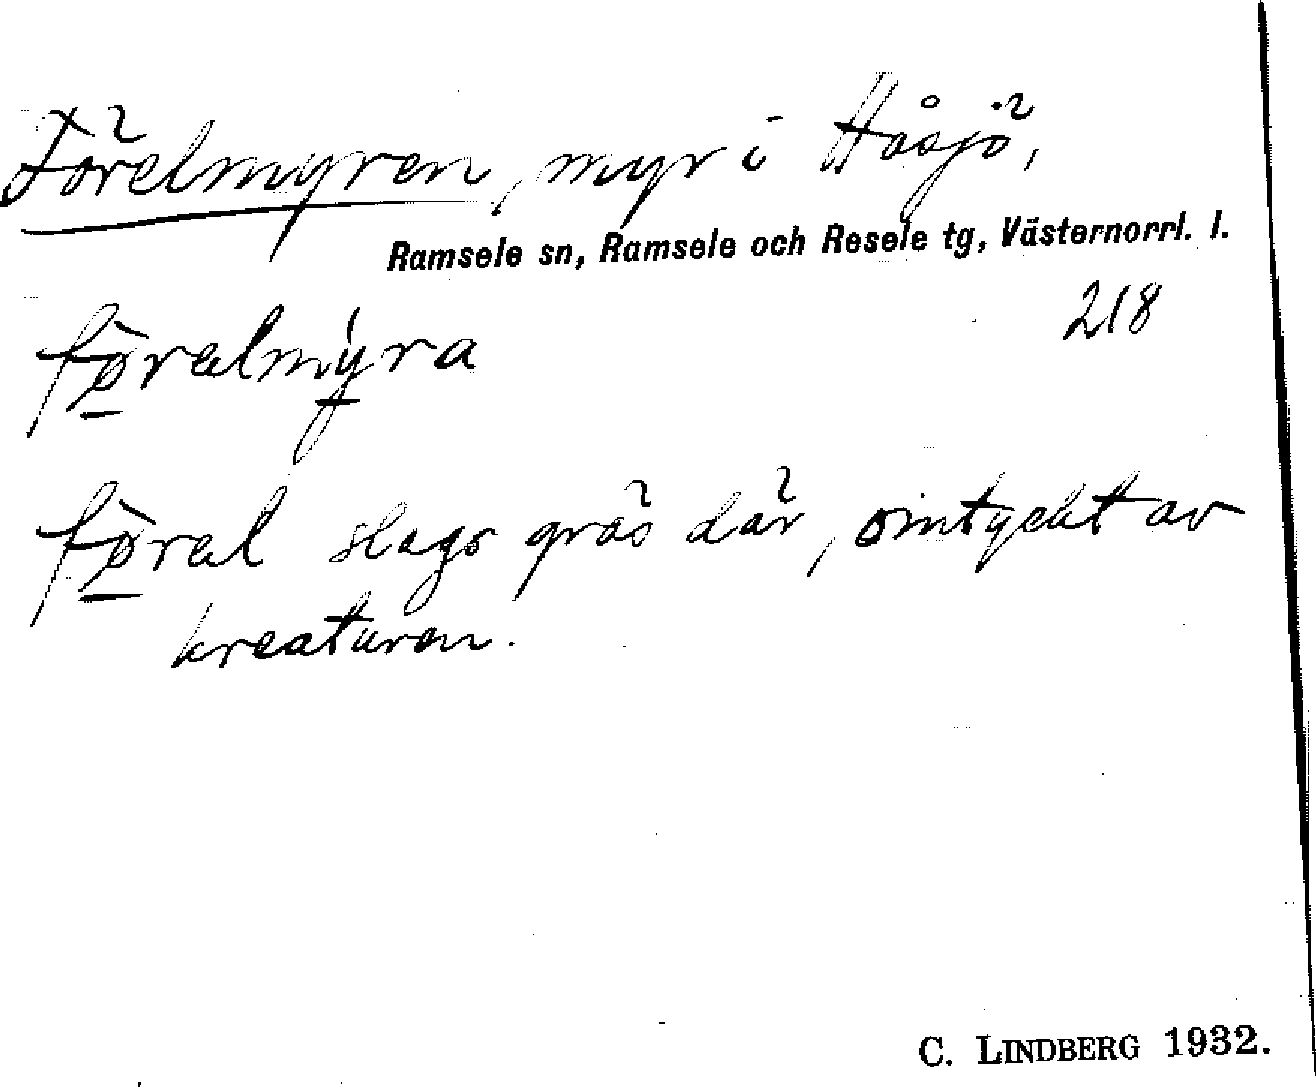 Förelmyren, myr i Håsjö,
Ramsele sn, Ramsele och Resele tg, Västernorrl. l.
218
fø̱̀ralmý̱ra
fø̱̀ral slags gräs där, omtyckt av
kreaturen.
C. LINDBERG 1932.